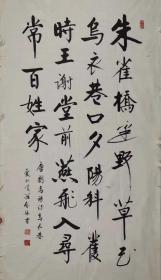 朱雀橋邊野草花
烏衣巷口夕陽斜舊
時王謝堂前燕飛入尋
常百姓家
唐劉禹錫詩烏衣巷